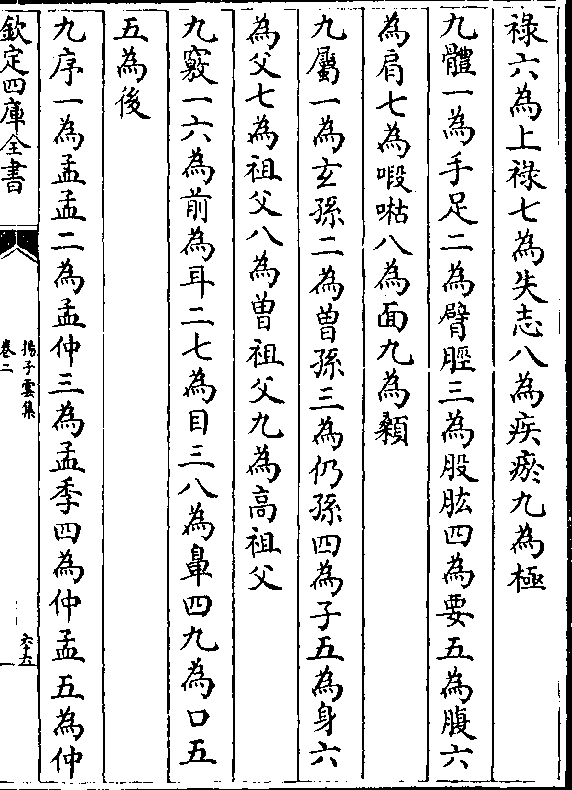 祿六為上祿七為失志八為疾瘀九為極
九體一為手足二為臂脛三為股肱四為要五為腹六
為肩七為嘏㗅八為面九為顙
九屬一為玄孫二為曽孫三為仍孫四為子五為身六
為父七為祖父八為曽祖父九為高祖父
九竅一六為前為耳二七為目三八為鼻四九為口五
五為後
九序一為孟孟二為孟仲三為孟季四為仲孟五為仲
欽定四庫全書
揚子雲集
卷二
六十五